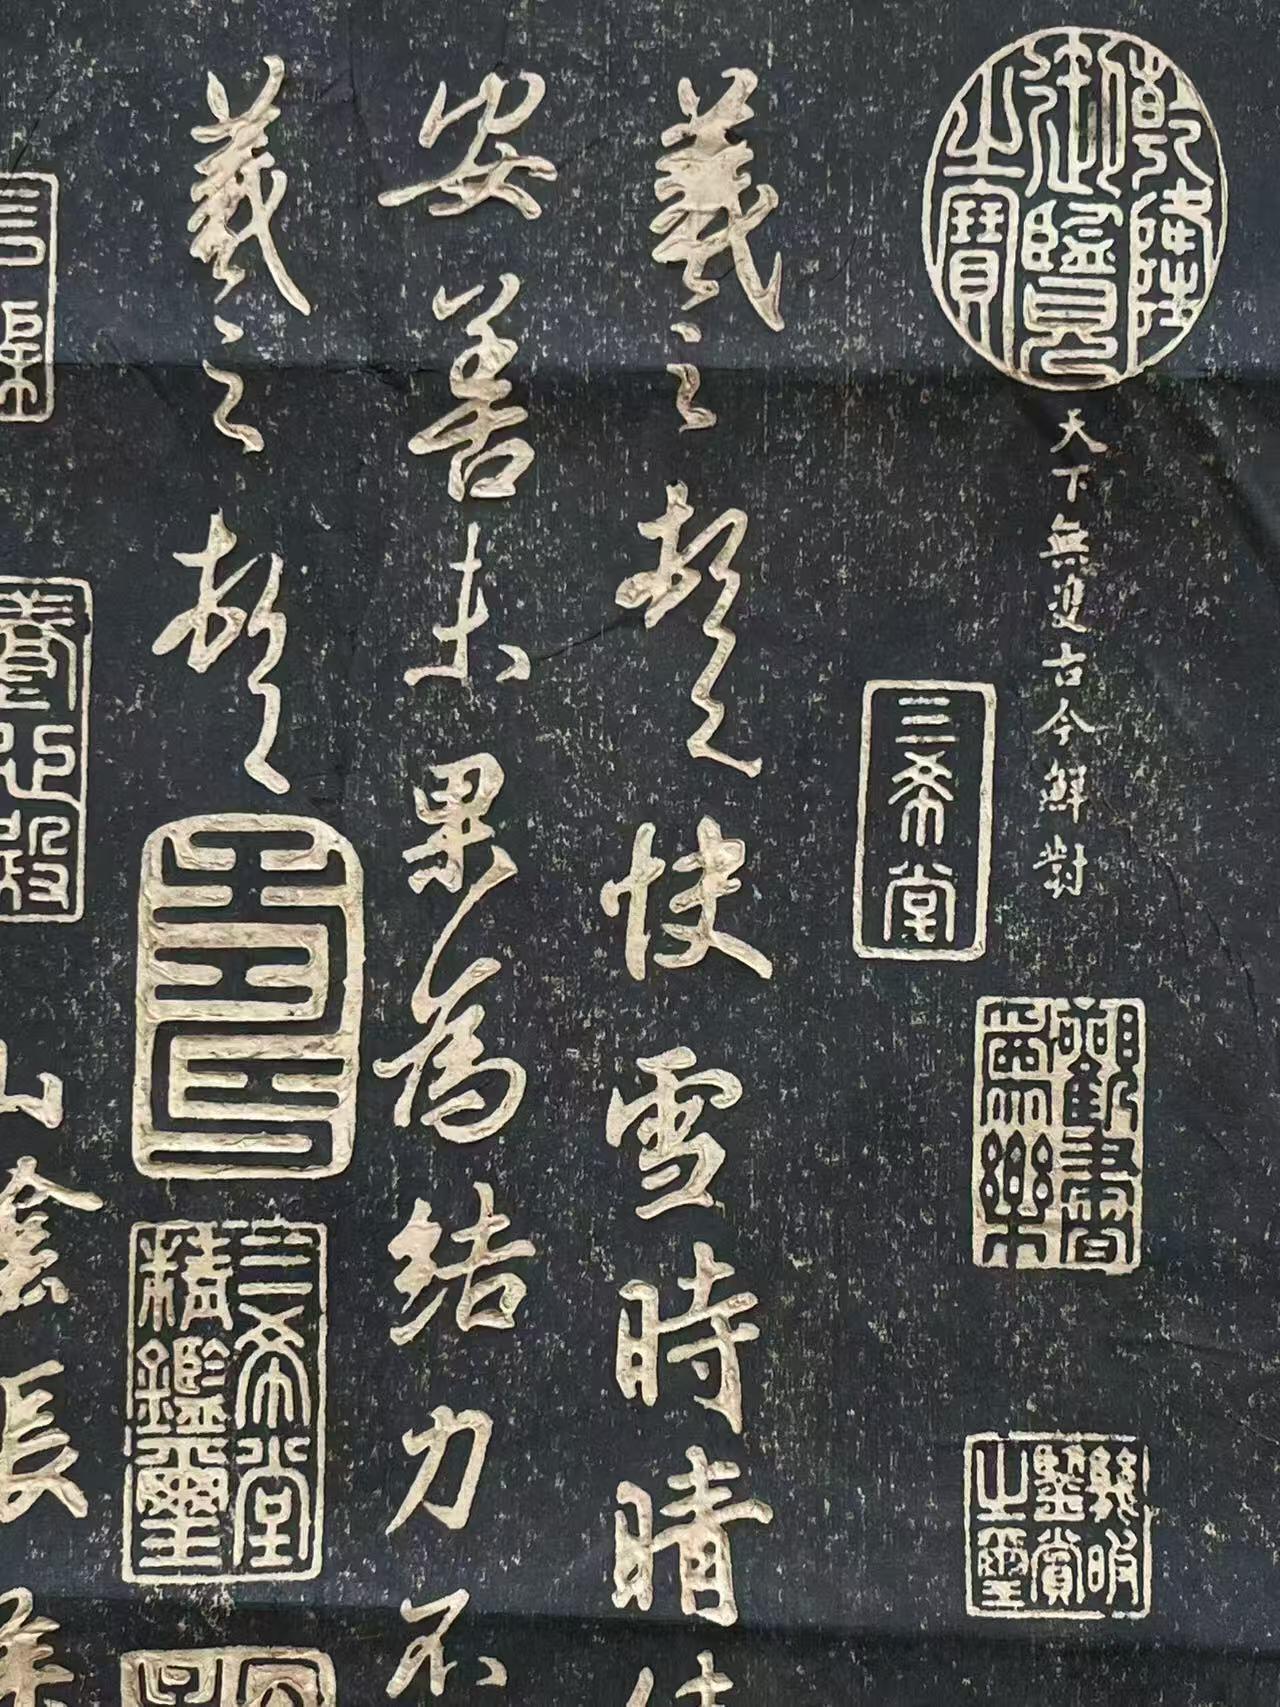 乾隆御覽之寶
天下無雙古今鮮對
三希堂
幾暇鑒賞之璽
羲之頓首快雪時晴佳
安善未果為結力不
羲之頓首
三希堂精鑑璽
山陰張侯